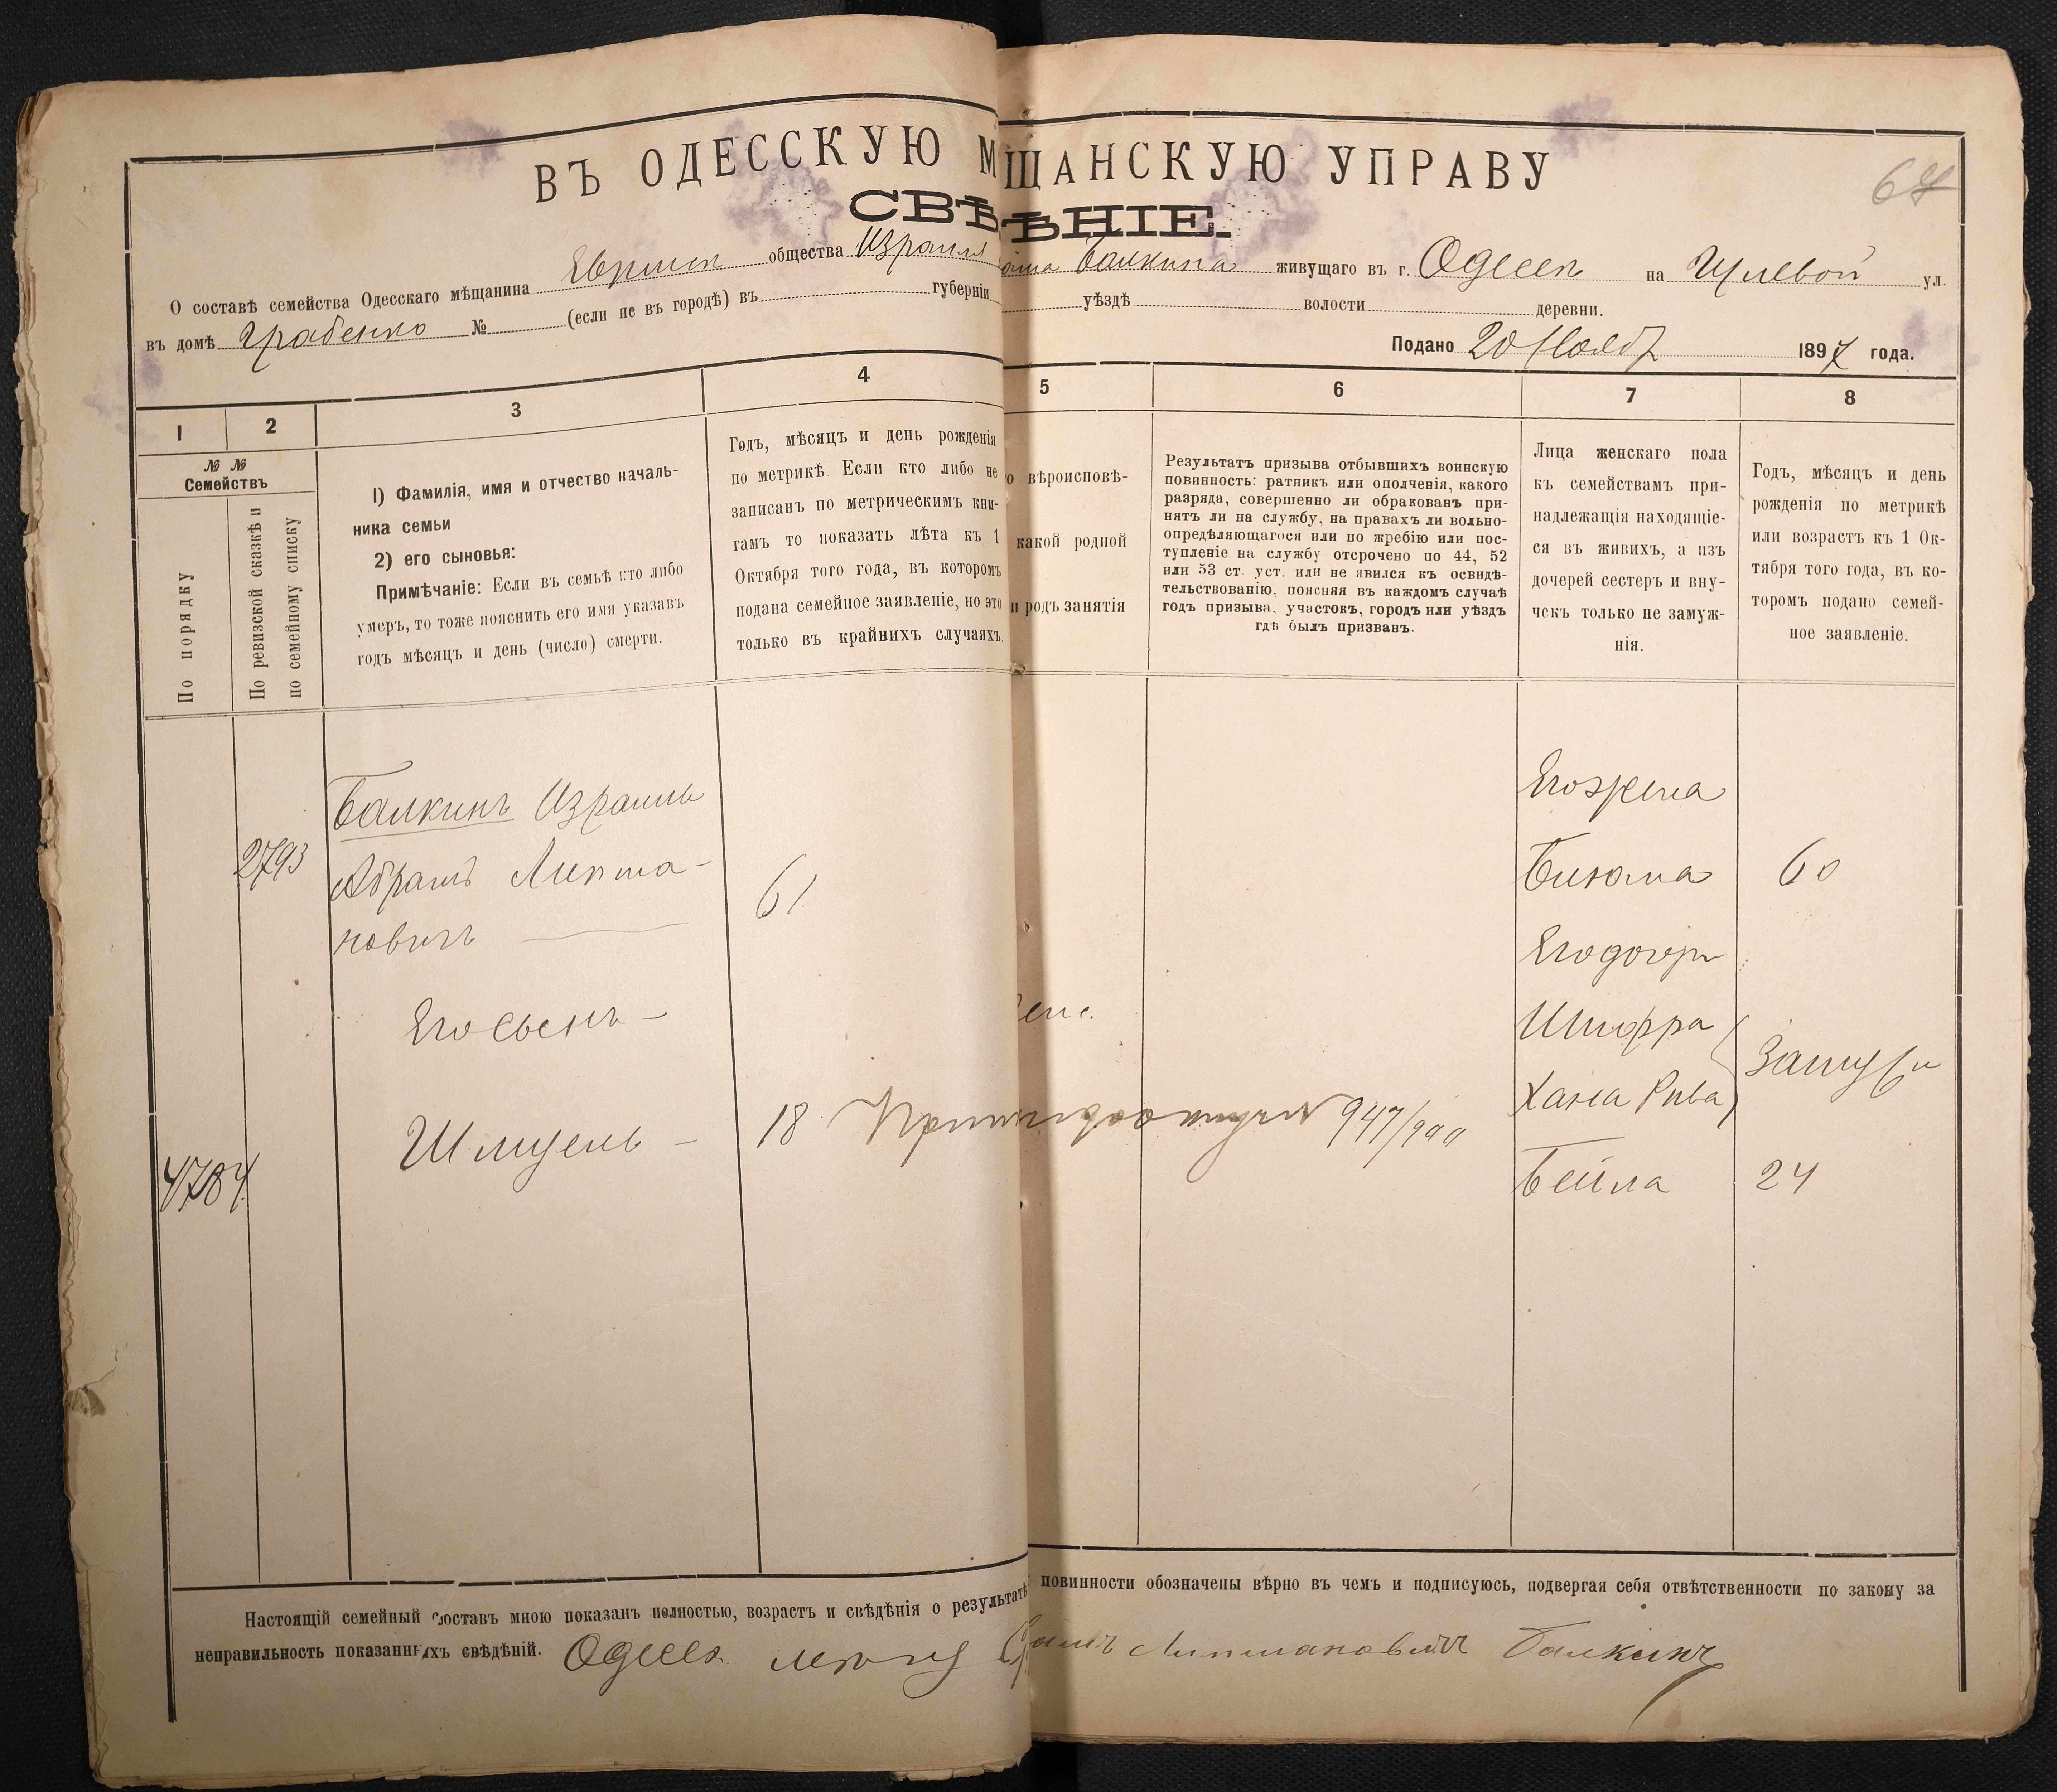 67
ВЪ ОДЕССКУЮ М ЩАНСКУЮ УПРАВУ
СВѢ ѢНІЕ.
О составѣ семейства Одесскаго мѣщанина общества Израиля Балкина живущаго въ г. Одессѣ на ул.
въ домѣ Грабенко № (если не въ городѣ) въ губерніи уѣздѣ волости деревни.
Подано 20 Нояб 1897 года.
1 2 3 4 5 6 7 8
№ №
Семействъ
По порядку
По ревизской сказкѣ и
по семейному списку
1) Фамилія, имя и отчество началь-
ника семьи
2) его сыновья:
Примѣчаніе: Если въ семьѣ кто либо
умеръ, то тоже пояснить его имя указавъ
годъ мѣсяцъ и день (число) смерти.
Годъ, мѣсяцъ и день рожденія
по метрикѣ. Если кто либо не
записанъ по метрическимъ кни-
гамъ то показать лѣта къ 1
Октября того года, въ которомъ
подана семейное заявленіе, но это
только въ крайнихъ случаяхъ.
о вѣроисповѣ-
какой родной
и родъ занятія
Результатъ призыва отбывшихъ воинскую
повинность: ратникъ или ополченія, какого
разряда, совершенно ли обракованъ при-
нятъ ли на службу, на правахъ ли вольно-
опредѣляющагося или по жребію или пос-
тупленіе на службу отсрочено по 44, 52
или 53 ст. уст. или не явился къ освидѣ-
тельствованію, поясняя въ каждомъ случаѣ
годъ призыва, участокъ, городъ или уѣздъ
гдѣ былъ призванъ.
Лица женскаго пола
къ семействамъ при-
надлежащія находящіе-
ся въ живихъ, а изъ
дочерей сестеръ и вну-
чекъ только не замуж-
нія.
Годъ, мѣсяцъ и день
рожденія по метрикѣ
или возрастъ къ 1 Ок-
тября того года, въ ко-
торомъ подано семей-
ное заявленіе.
Балкинъ Израиль
2793 Абрамъ Липма-
новичъ 61
Его жена
60
Его сынъ
Шифра
Хана Рива
4784 Шмуель 18 947/900
Бейла 24
Настоящій семейный составъ мною показанъ полностью, возрастъ и свѣдѣнія о результатѣ повинности обозначены вѣрно въ чемъ и подписуюсь, подвергая себя отвѣтственности по закону за
неправильность показанныхъ свѣдѣній. Одесса Липмановичъ Балкинъ